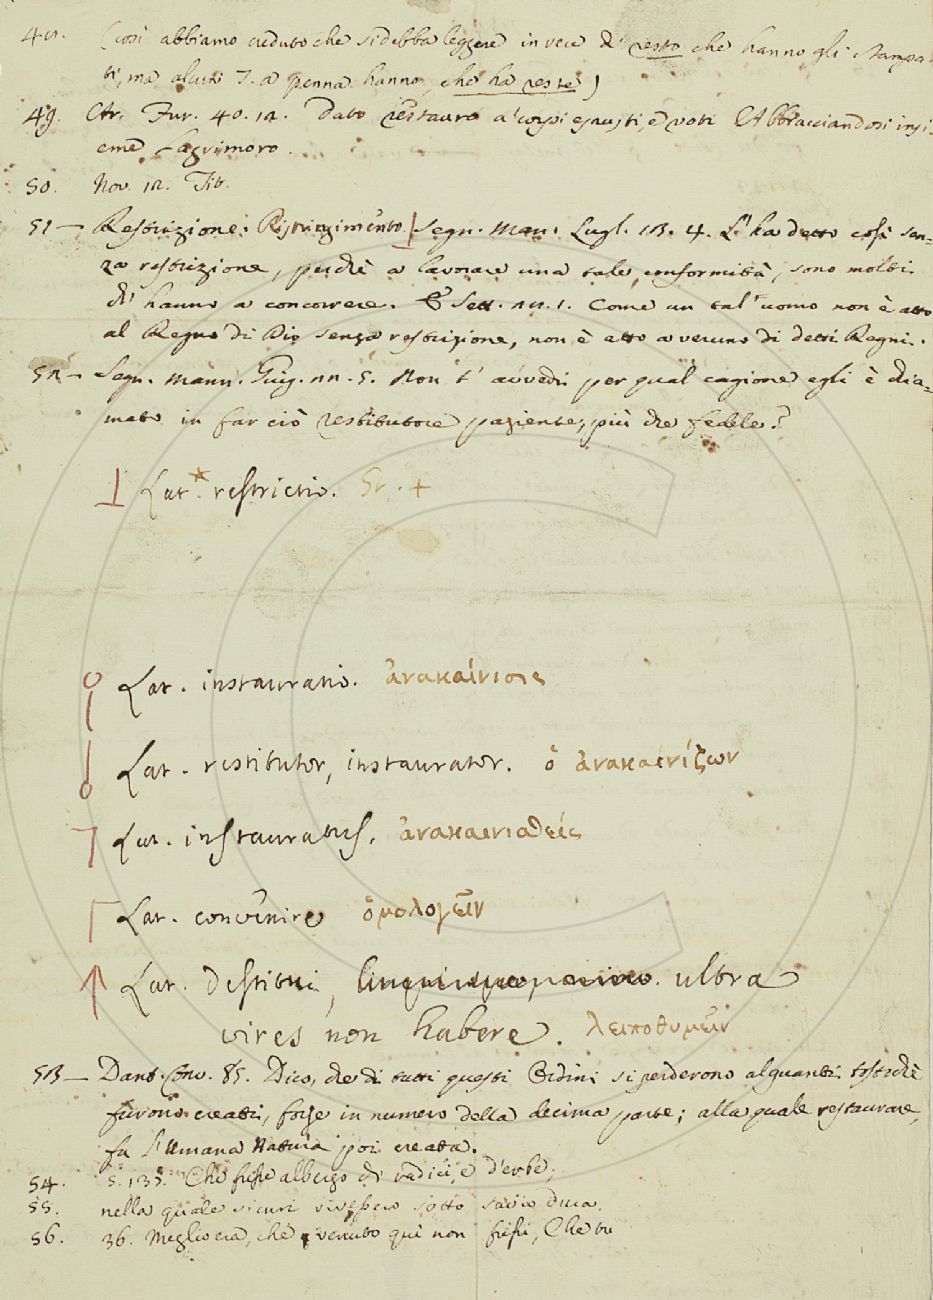 (così abbiamo creduto che si debba leggere in vece di resto che hanno gli stampa-
ti, ma alcuni T. a penna hanno, che ha reste)
49. Ar. Fur. 40. 12. Dato restauro a' corpi esausti, e voti Abbracciandosi insi-
eme lagrimoro.
50. Nov. 12. Tit.
51 — Restrizione. Ristringimento. Segn. Mann. Lugl. 13. 4. L'ha detto così sen-
za restrizione, perchè a lavorare una tale conformità, sono molti
ch' hanno a concorrere. E Sett. 12. 1. Come un tal' uomo non è atto
al Regno di Dio senza restrizione, non è atto a veruno di detti Regni.
52 — Segn. Mann. Giug. 22. 5. Non t' avvedi per qual cagione egli è chia-
mato in far ciò restitutore paziente, più che fedele?
Lat. * restrictio. Gr. +
Lat. instauratio. ἀνακαίνισις
Lat. restitutor, instaurator. ὁ ἀνακαινίζων
Lat. instauratus. ἀνακαινισθείς
Lat. convenire ὁμολογεῖν
Lat. destitui, ultra
vires non habere. λειποθυμεῖν
53 — Dant. Conv. 85. Dico, che di tutti questi Ordini si perderono alquanti tostochè
furono creati, forse in numero della decima parte; alla quale restaurare,
fu l'Umana Natura poi creata.
54. Che fusse albergo di radici, e d'erbe,
55. nella quale sicuri vivessero sotto savio duca.
56. 36. Meglio era, che venuto qui non fussi, Che tu